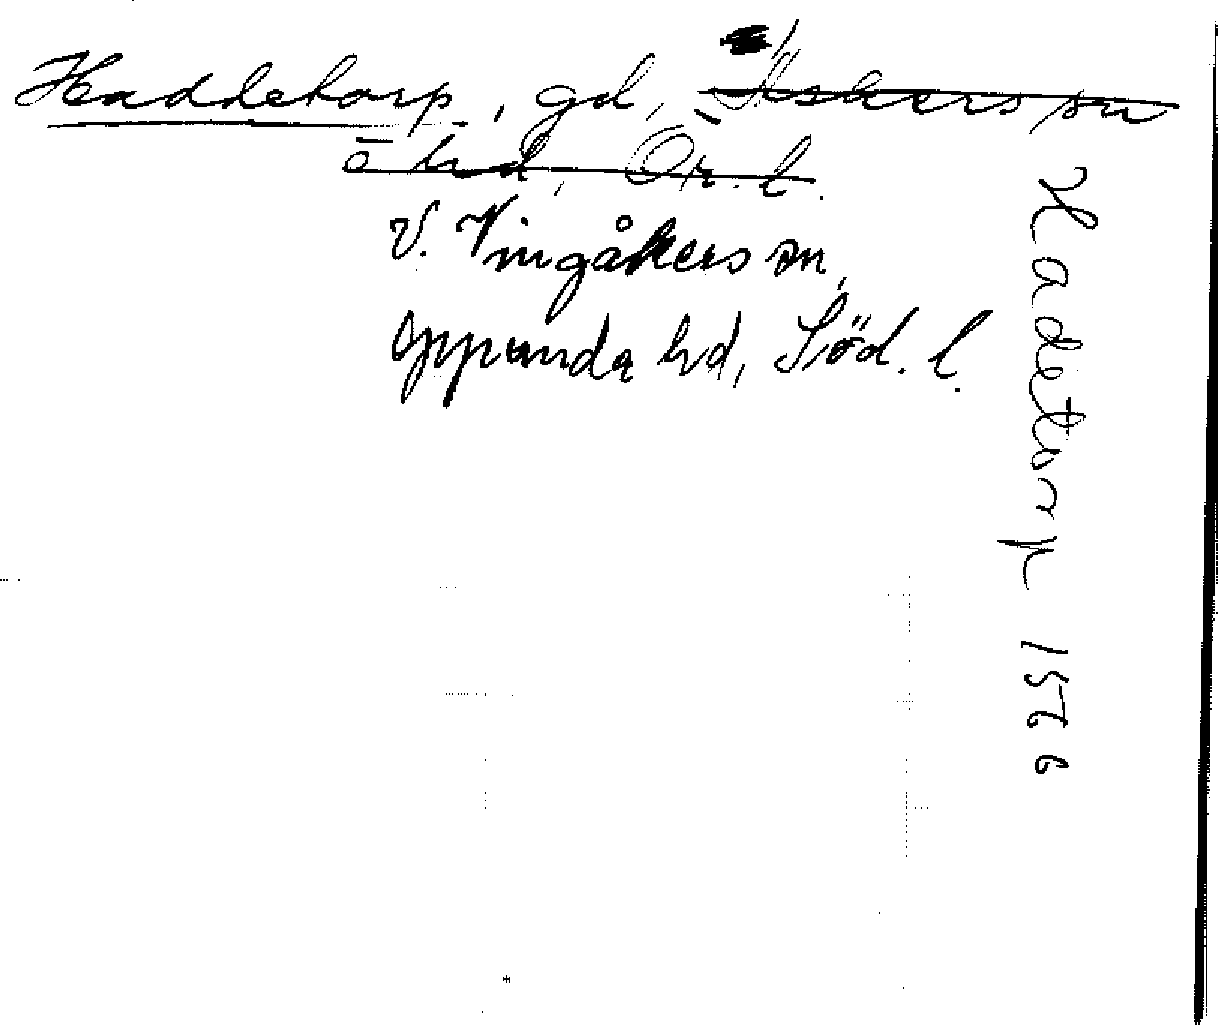 Haddetorp, gd, Askers sn
ō hd, Ör. l.
V. Vingåkers sn,
Oppunda hd, Söd. l.
Hadetorp 1566